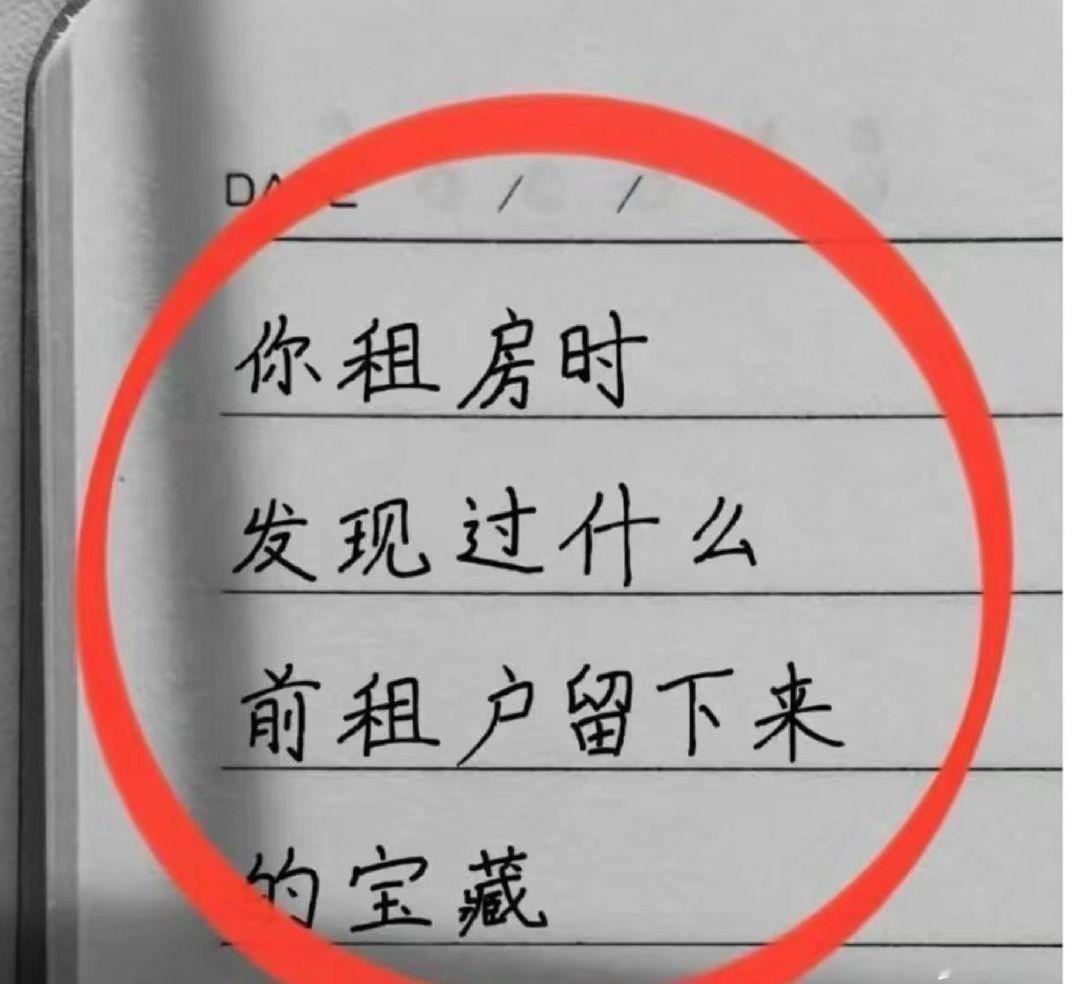 DATE / /
你租房时
发现过什么
前租户留下来
的宝藏